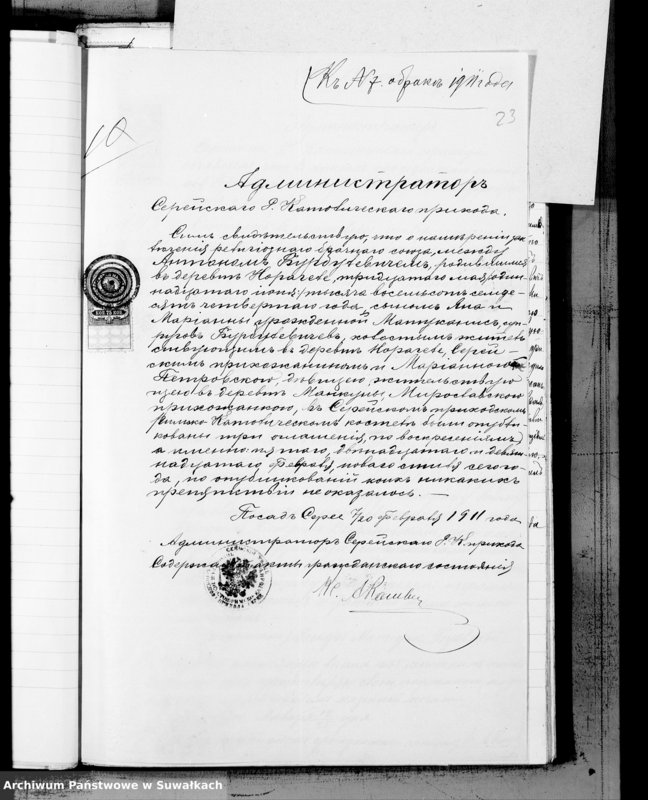 Къ №7. о бракѣ 1911 года
23
10
Администраторъ
Серейскаго Р. Католическаго прихода.
Симъ свидѣтельствую, что о намѣреніи зак-
люченія религіознаго брачнаго союза, между
Антономъ родившимся
въ деревнѣ Норагеле, тридцатаго мая/один-
надцатаго іюня/ тысяча восемьсотъ семьде-
сятъ четвертаго года, сыномъ Яна и
Маріанны урожденной суп-
руговъ холостымъ житель-
ствующимъ въ деревнѣ Норагеле, Серей-
скимъ прихожаниномъ и Маріанною
Петровской, дѣвицею, жительствую-
щею въ деревнѣ Мирославскою
прихожанкою, въ Серейскомъ приходскомъ
Римско Католическомъ костелѣ были опубли-
кованы три оглашенія, по воскресеніямъ,
а именно: пятаго, двѣнадцатаго и девят-
надцатаго Февраля, новаго стиля сего го-
да, по опубликованіи коихъ никакихъ
препятствій не оказалось. —
Посадъ Сереи 7/20 Февраля 1911 года
Администраторъ Серейскаго Р. К. прихода
Содержащій акты гражданскаго состоянія
Кс.
КОП. 75 КОП.
Archiwum Państwowe w Suwałkach